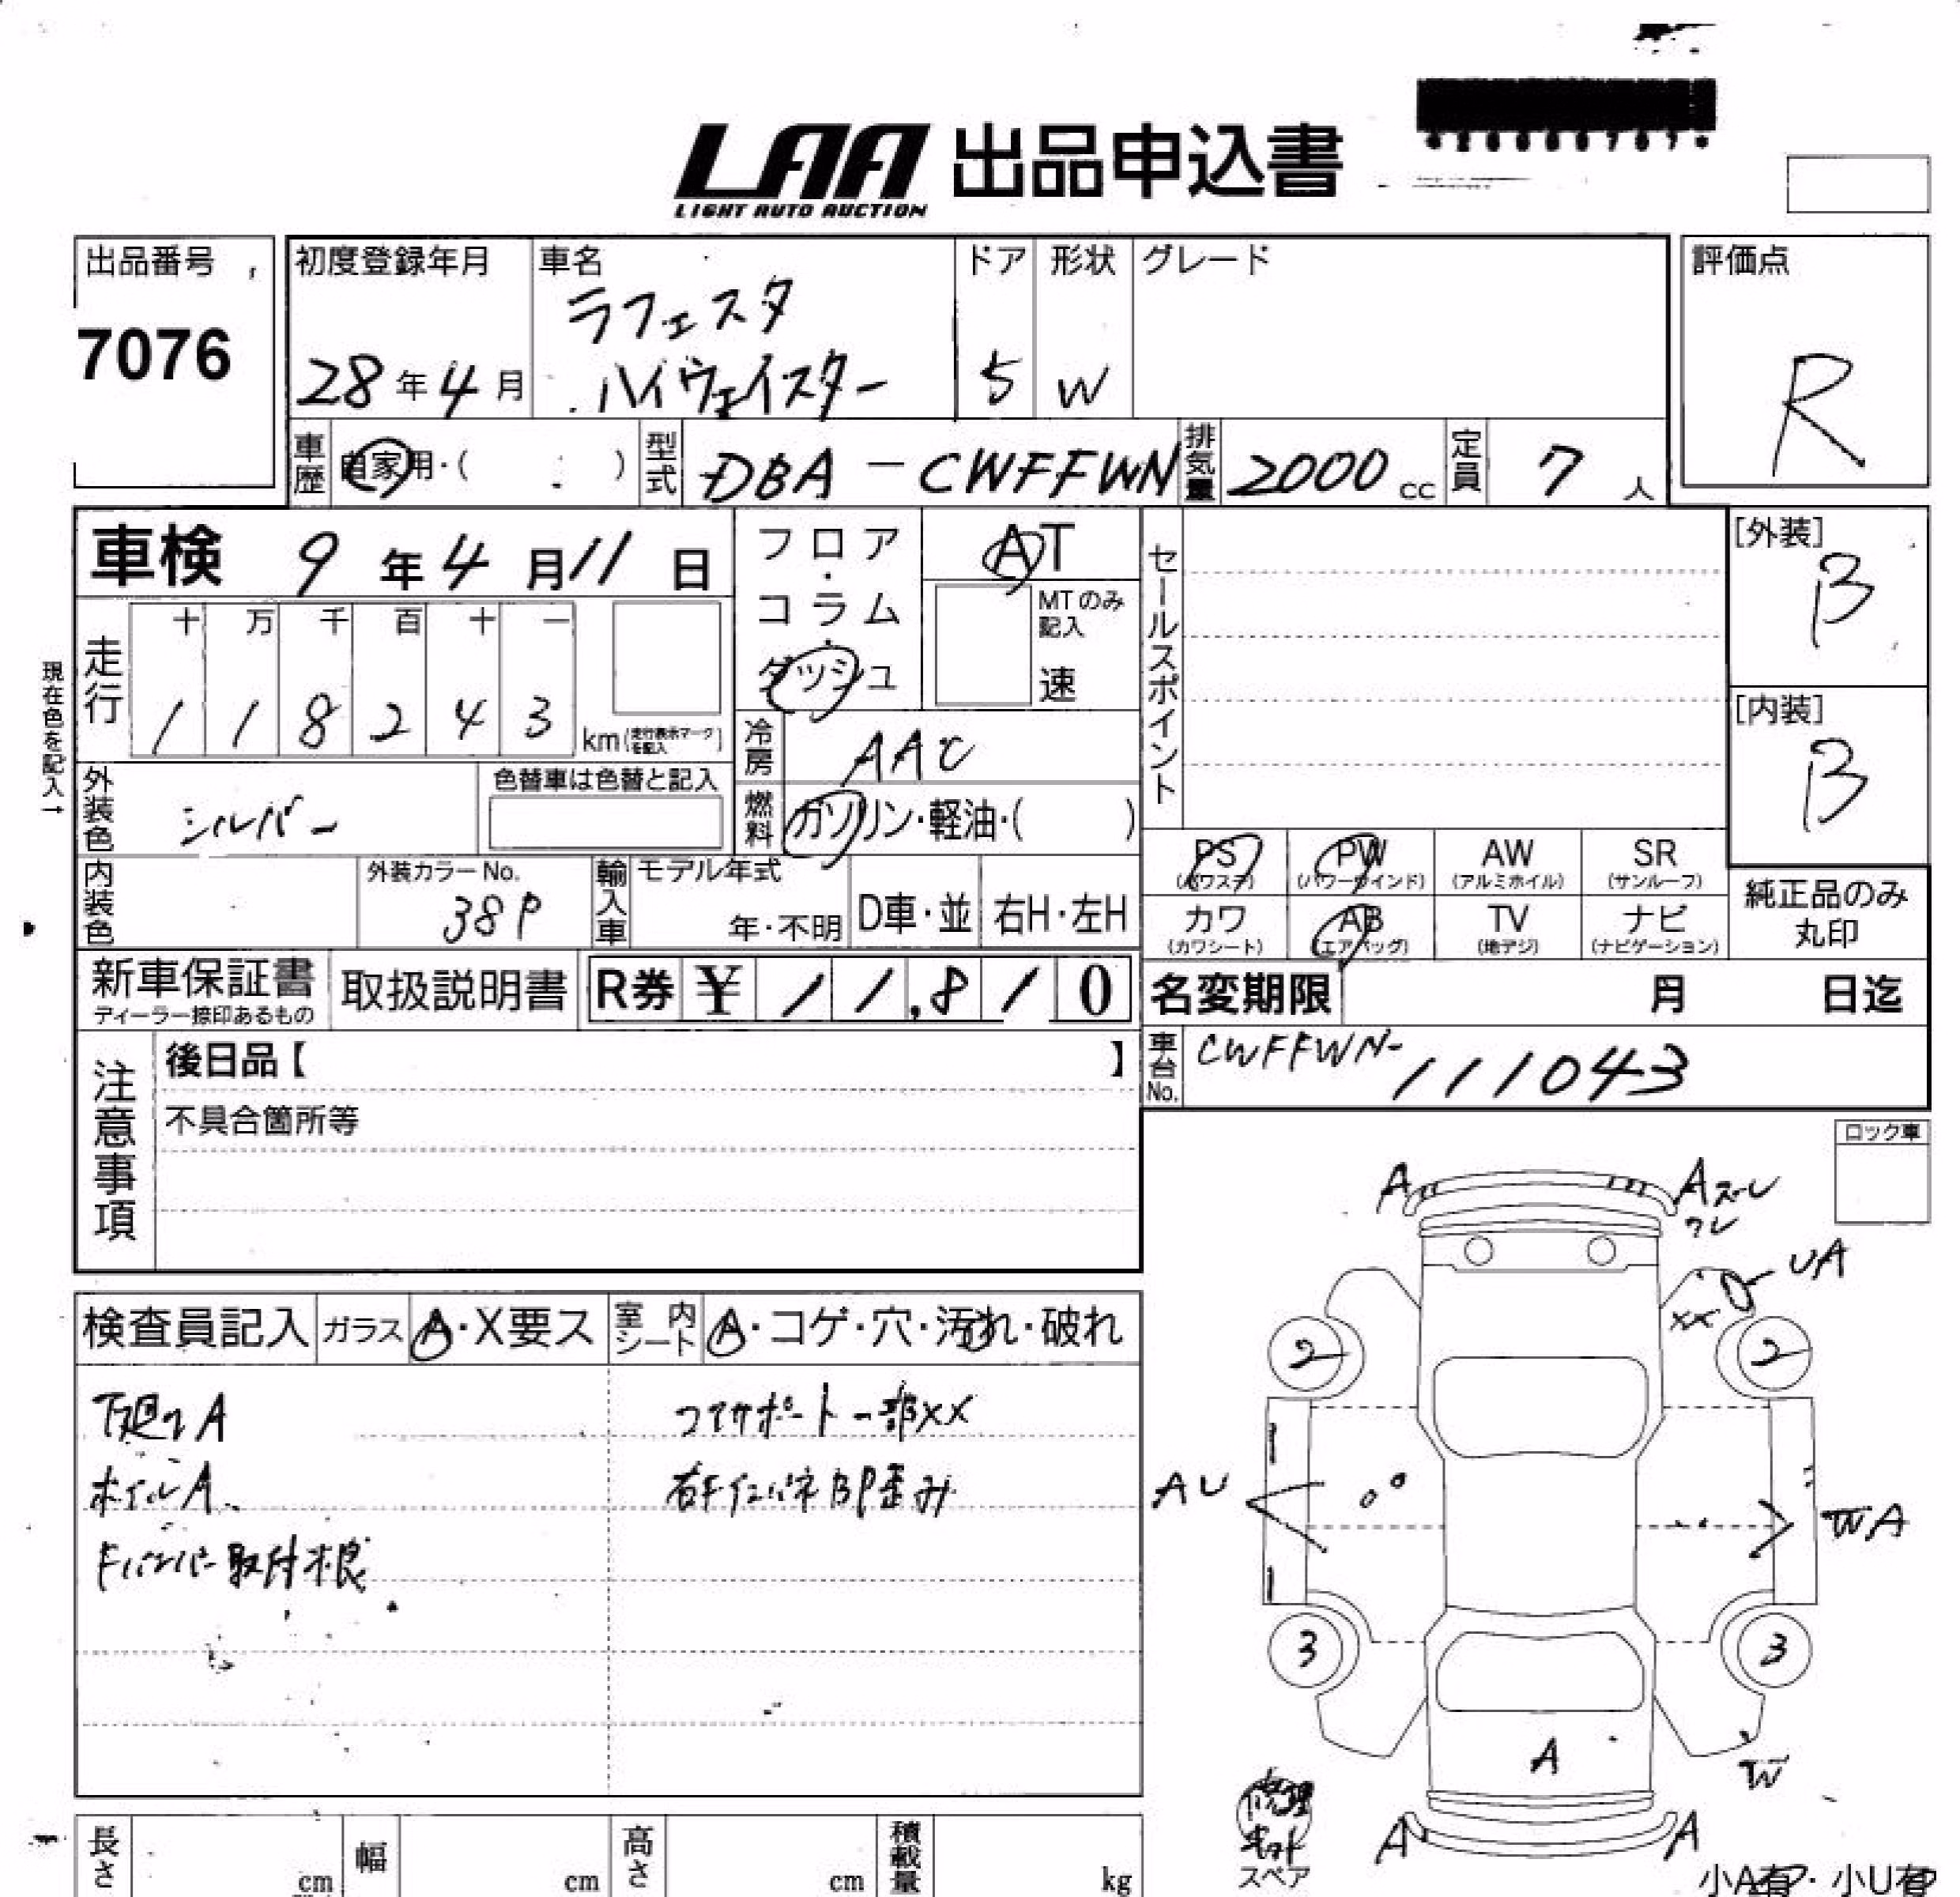 LAA 出品申込書
LIGHT AUTO AUCTION
出品番号
7076
初度登録年月
28年4月
車名
ラフェスタ
ハイウェイスター
ドア
5
形状
W
グレード
評価点
R
車歴
自家用・(   )
型式
DBA-CWFFWN
排気量
2000cc
定員
7人
車検 9年4月11日
フロア・コラム・ダッシュ
AT
MTのみ記入
速
セールスポイント
[外装]
B
[内装]
B
現在色を記入→
走行
十 万 千 百 十 一
1 1 8 2 4 3
km(走行表示マークを記入)
冷房
AAC
燃料
ガソリン・軽油・(   )
外装色
シルバー
色替車は色替と記入
内装色
外装カラーNo.
38P
輸入車
モデル年式
年・不明
D車・並
右H・左H
PS
(パワステ)
PW
(パワーウインド)
AW
(アルミホイル)
SR
(サンルーフ)
カワ
(カワシート)
AB
(エアバッグ)
TV
(地デジ)
ナビ
(ナビゲーション)
純正品のみ
丸印
新車保証書
ディーラー捺印あるもの
取扱説明書
R券 ¥11,810
名変期限 月 日迄
車台No.
CWFFWN-111043
注意事項
後日品【   】
不具合箇所等
ロック車
検査員記入
ガラス
A・X要ス
室内シート
A・コゲ・穴・汚れ・破れ
下廻りA
コアサポート一部XX
ホイルA
右FインパネBP歪み
Fバンパー取付不良
A
Aズレ
ワレ
UA
XX
2
2
AU
WA
3
3
A
W
修理
キット
スペア
A
A
小A有・小U有
長さ
cm
幅
cm
高さ
cm
積載量
kg